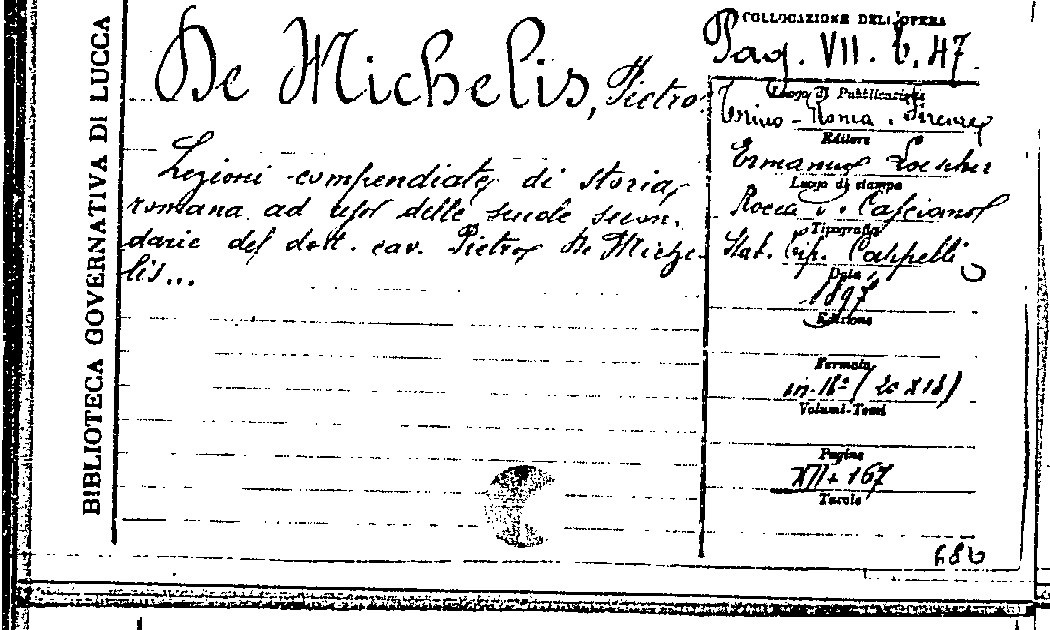 BIBLIOTECA GOVERNATIVA DI LUCCA
De Michelis, Pietro
Lezioni compendiate di storia
romana ad uso delle scuole secon-
darie del dott. cav. Pietro De Miche-
lis...
COLLOCAZIONE DELL'OPERA
Pag. VII. b. 47.
Luogo di Pubblicazione
Torino - Roma - Firenze
Editore
Ermanno Loescher
Luogo di stampa
Rocca S. Casciano
Tipografia
Stab. Tip. Cappelli
Data
1897
Edizione
Formato
in-16º (20x13)
Volumi-Tomi
Pagine
XII+167
Tavole